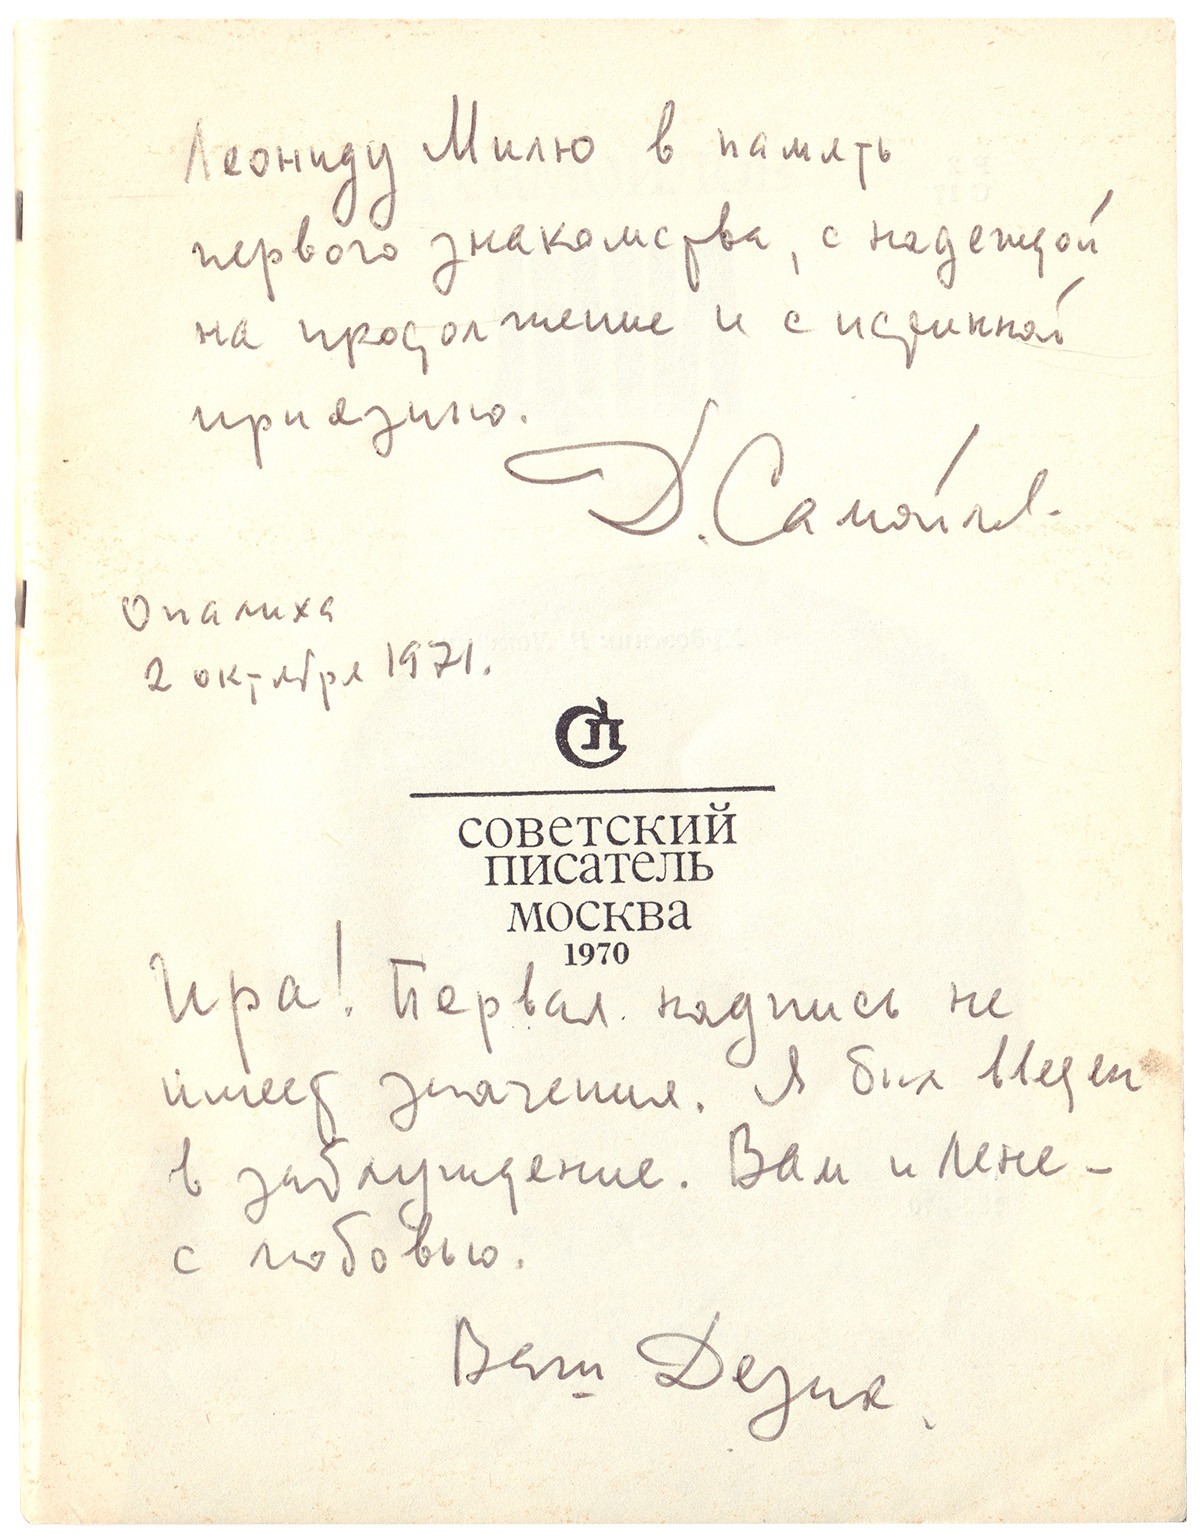 Леониду Милю в память
первого знакомства, с надеждой
на продолжение и с истинной
приязнью.
Д. Самойлов.
Опалиха
2 октября 1971.
СП
СОВЕТСКИЙ
ПИСАТЕЛЬ
МОСКВА
1970
Ира! Первая надпись не
имеет значения. Я был введен
в заблуждение. Вам и Лене –
с любовью.
Ваш Дезик.